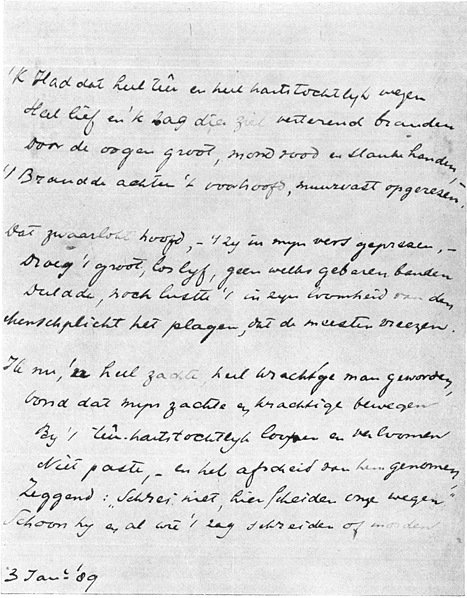 'K Had dat heel têêr en heel hartstochtlyk wezen
Heel lief en 'k zag die ziel verterend branden
Door de oogen groot, mond rood en slanke handen
't Brandde achter 't voorhoofd, muurvast opgerezen.
Dat zwaarlokt hoofd, - 't zy in myn vers geprezen, -
Droeg 't groot, los lyf, geen welks gebaren banden
Duldde, noch lustte 't in zyn loomheid van den
Menschplicht het plagen, dat de meesten vreezen.
Ik nu, 'n heel zachte, heel kracht'ge man geworden,
Vond dat myn zachte en krachtige bewegen
By 't têêr-hartstochtlyk loopen en verloomen
Niet paste, - en heb afscheid van hem genomen,
Zeggend: "Schrei niet, hier scheiden onze wegen"
Schoon hy en al wie 't zag schreiden of morden
3 Jan. '89